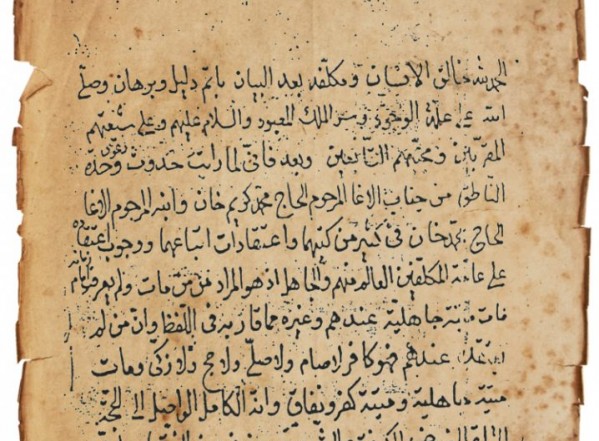 الحمد لله خالق الانسان ومكلفه بعد البيان باتم دليل وبرهان وصلى
الله على علة الوجود وسر الملك المعبود والسلام عليهم وعلى شيعتهم
المقربين ومحبيهم التابعين وبعد فانى لما رايت حدوث دعوى وحدة
الناطق من جناب الاغا المرحوم الحاج محمد كريم خان وابنه المرحوم الاغا
الحاج محمد خان فى كثير من كتبهما واعتقادات اتباعهما ووجوب اعتقاده
على عامة المكلفين العالم منهم والجاهل اذ هو المراد من من مات ولم يعرف امام زمانه
مات ميتة جاهلية عندهم وغيره مما قاربه فى اللفظ وان من لم
عندهم فهو كافر لا صام ولا صلى ولا حج ولا زكى ومات
ميتة جاهلية وميتة كفر ونفاق وانه الكامل الواصل الى الحجة